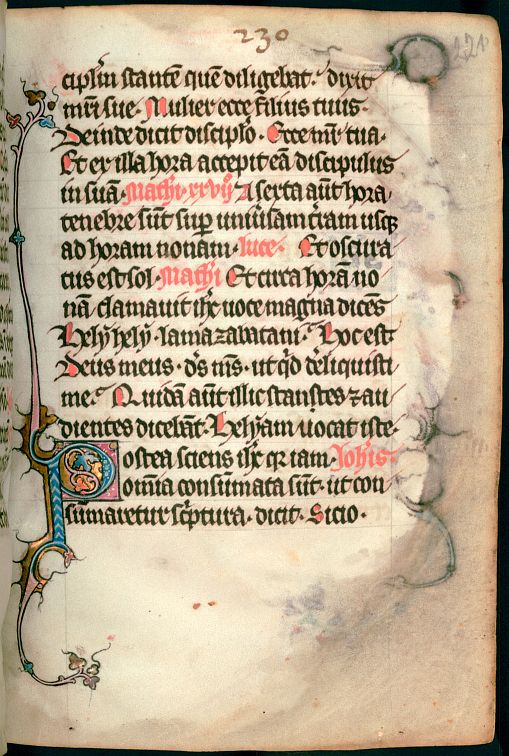 230
221
ciplm̄ stantē quē diligebat. dixit
mr̄i sue. Mulier ecce filius tuus.
Deinde dicit disciplo. Ecce mr̄ tua.
Et ex illa hora accepit eā discipulus
in suā. Mathi xxvij A sexta aūt hora
tenebre sūt sup unūsam tr̄am usq
ad horam nonam. luce. Et oscura
tus est sol. Mathi Et circa horā no
nā clamauit ihc uoce magna dicēs
Hely hely. lamazabatani. Hoc est
Deus meus. ds̄ ms̄. ut qd dereliquisti
me. Quidā aūt illic stantes z au
dientes dicebāt. Helyam uocat iste.
Postea sciens ihc qr iam. Johis
omīa consūmata sūt. ut con
sūmaretur scptura. dicit. Sicio.